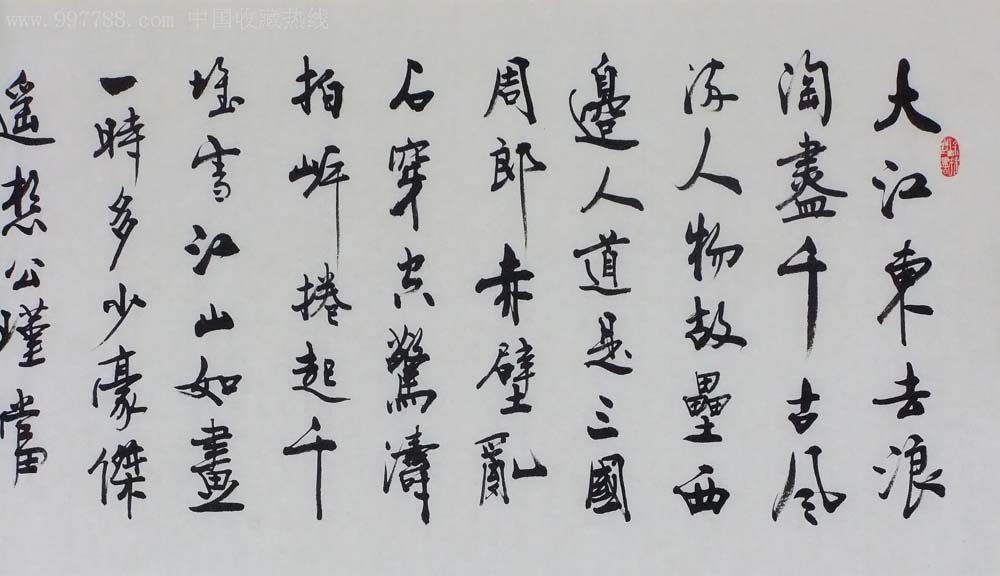 www.997788.com 中国收藏热线
大江東去浪
淘盡千古風
流人物故壘西
邊人道是三國
周郎赤壁亂
石穿空驚濤
拍岸捲起千
堆雪江山如畫
一時多少豪傑
遥想公瑾當